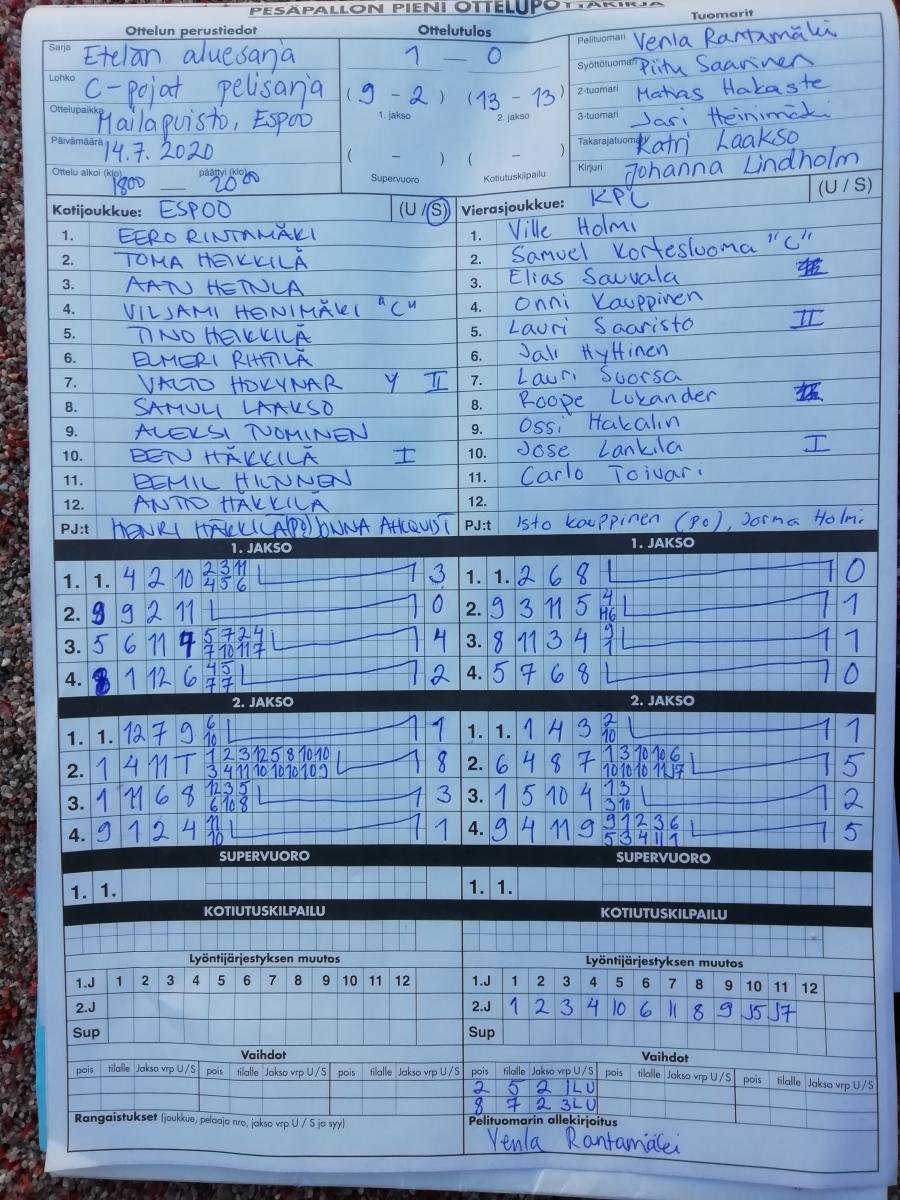 PESÄPALLON PIENI OTTELUPÖYTÄKIRJA
Ottelun perustiedot
Sarja Etelän aluesarja
Lohko C-pojat pelisarja
Ottelupaikka Mailapuisto, Espoo
Päivämäärä 14.7. 2020
Ottelu alkoi (klo) 1800 — päättyi (klo) 2000
Ottelutulos
1 — 0
( 9 - 2 ) (13 - 13)
1. jakso 2. jakso
( - ) ( - )
Supervuoro Kotiutuskilpailu
Tuomarit
Pelituomari Venla Rantamäki
Syöttötuomari Piitu Saarinen
2-tuomari Matias Hakaste
3-tuomari Jari Heinimäki
Takarajatuomari Katri Laakso
Kirjuri Johanna Lindholm
Kotijoukkue: ESPOO (U / S)
1. EERO RINTAMÄKI
2. TOMA HEIKKILÄ
3. AATU HEINLA
4. VILJAMI HEINIMÄKI "C"
5. TINO HEIKKILÄ
6. ELMERI RIHTILÄ
7. VALTO HOKYNAR Y II
8. SAMULI LAAKSO
9. ALEKSI TUOMINEN
10. BEN HÄKKILÄ I
11. EEMIL HILTUNEN
12. ANTTO HÄKKILÄ
PJ:t HENRI HÄKKILÄ(PJ) JONNA AHLQVIST
Vierasjoukkue: KPL (U / S)
1. Ville Holmi
2. Samuel Kortesluoma "C"
3. Elias Sauvala
4. Onni Kauppinen
5. Lauri Saaristo II
6. Jali Hyttinen
7. Lauri Suorsa
8. Roope Lukander
9. Ossi Hakalin
10. Jose Lankila I
11. Carlo Toivari
12.
PJ:t Isto Kauppinen (PJ), Jorma Holmi
1. JAKSO
1. 1. 4 2 10 2 3 11 3
4 5 6
2. 9 9 2 11 0
3. 5 6 11 7 5 7 2 4 4
7 10 11 7
4. 8 1 12 6 4 5 2
7 7
2. JAKSO
1. 1. 12 7 9 6 1
10
2. 1 4 11 T 1 2 3 12 5 8 10 10 8
3 4 11 10 10 10 10 9
3. 1 11 6 8 12 3 5 3
6 10 8
4. 9 1 2 4 11 1
10
SUPERVUORO
1. 1.
KOTIUTUSKILPAILU
1. JAKSO
1. 1. 2 6 8 0
2. 9 3 11 5 4 1
3. 8 11 3 4 9 1
1
4. 5 7 6 8 0
2. JAKSO
1. 1. 1 4 3 2 1
10
2. 6 4 8 7 1 3 10 10 6 5
10 10 10 11 J7
3. 1 5 10 4 1 3 2
3 10
4. 9 4 11 9 9 1 2 3 6 5
5 3 4 11 1
SUPERVUORO
1. 1.
KOTIUTUSKILPAILU
Lyöntijärjestyksen muutos
1.J 1 2 3 4 5 6 7 8 9 10 11 12
2.J
Sup
Vaihdot
pois tilalle Jakso vrp U/S pois tilalle Jakso vrp U/S pois tilalle Jakso vrp U/S
Rangaistukset (joukkue, pelaaja nro, jakso vrp U / S ja syy)
Lyöntijärjestyksen muutos
1.J 1 2 3 4 5 6 7 8 9 10 11 12
2.J 1 2 3 4 10 6 11 8 9 J5 J7
Sup
Vaihdot
pois tilalle Jakso vrp U/S pois tilalle Jakso vrp U/S pois tilalle Jakso vrp U/S
2 5 2 1LU
8 7 2 3LU
Pelituomarin allekirjoitus
Venla Rantamäki